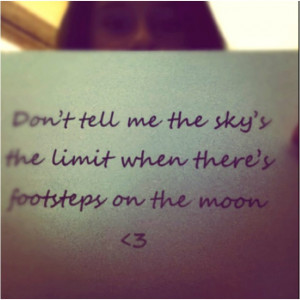 Don't tell me the sky's
the limit when there's
footsteps on the moon
<3